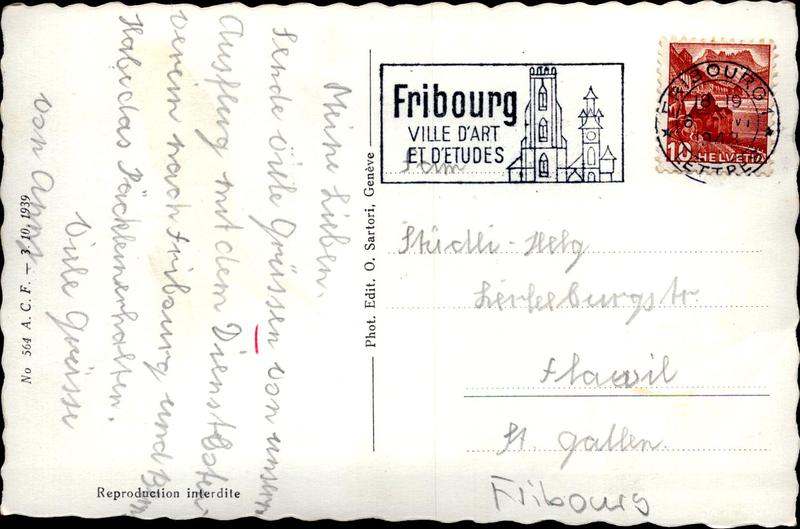 Meine Lieben.
Sende viele Grüssen von unserm
Ausflug mit dem Dienstboten
verein nach Fribourg und Bern
Habe das Päckleinerhalten.
Viele Grüsse
von Anny
No 564 A. C. F. — 3. 10. 1939
Reproduction interdite
Phot. Edit. O. Sartori, Genève
Fribourg
VILLE D'ART
ET D'ETUDES
FRIBOURG 1
18-19
VI
1948
LETTRES
10 HELVETIA
Fam
Städli-Helg
Flawil
St. Gallen.
Fribourg